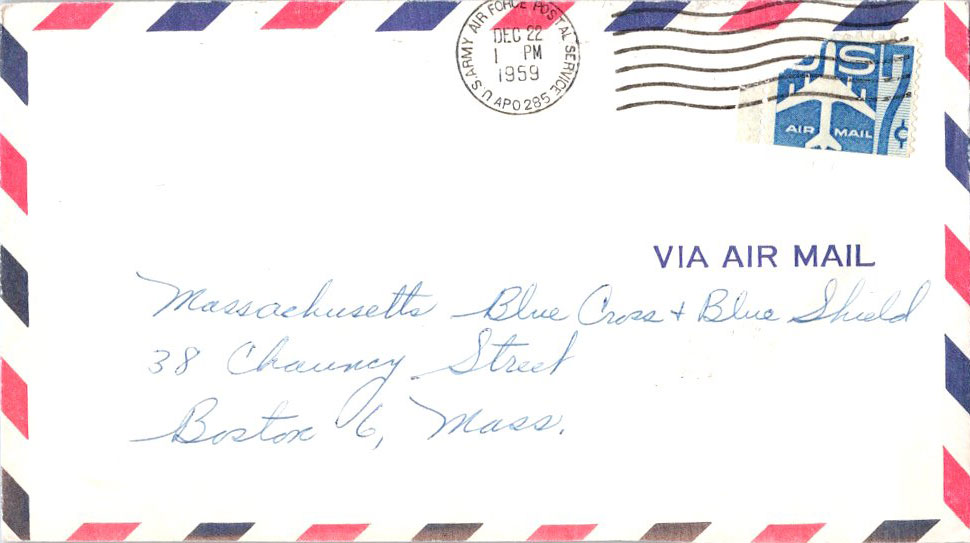 U.S. ARMY AIR FORCE POSTAL SERVICE
DEC 22
1 PM
1959
APO 285
US
7¢
AIR MAIL
VIA AIR MAIL
Massachusetts Blue Cross + Blue Shield
38 Chauncy Street
Boston 6, Mass.